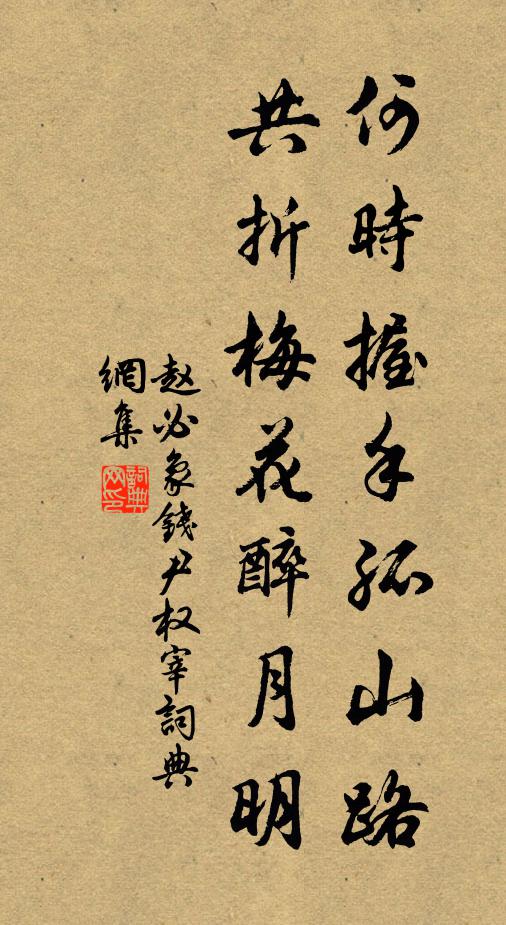 何時握手孤山路
共折梅花醉月明
趙必象錢尹权宰詞典
網集
詞典
网印